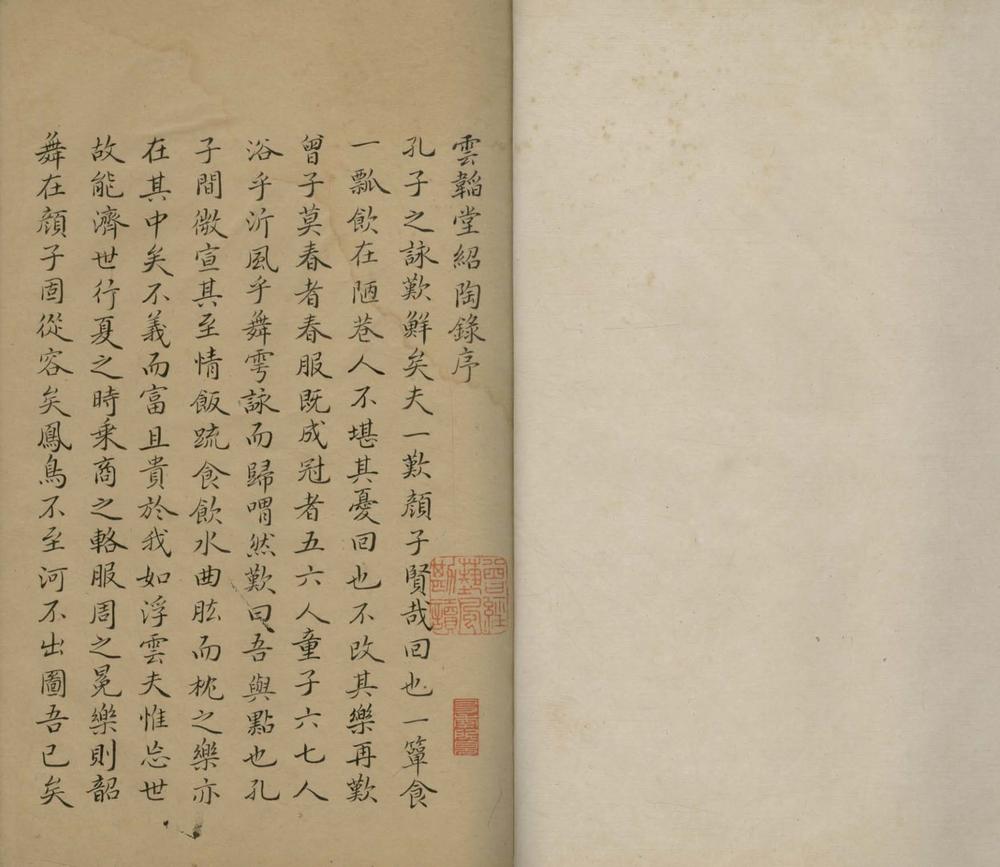 雲韜堂紹陶錄序
孔子之詠歎鮮矣夫一歎顏子賢哉回也一簞食
一瓢飲在陋巷人不堪其憂回也不改其樂再歎
曾子莫春者春服既成冠者五六人童子六七人
浴乎沂風乎舞雩詠而歸喟然歎曰吾與點也孔
子間微宣其至情飯疏食飲水曲肱而枕之樂亦
在其中矣不義而富且貴於我如浮雲夫惟忘世
故能濟世行夏之時乘商之輅服周之冕樂則韶
舞在顏子固從容矣鳳鳥不至河不出圖吾已矣
曾經藝風勘讀